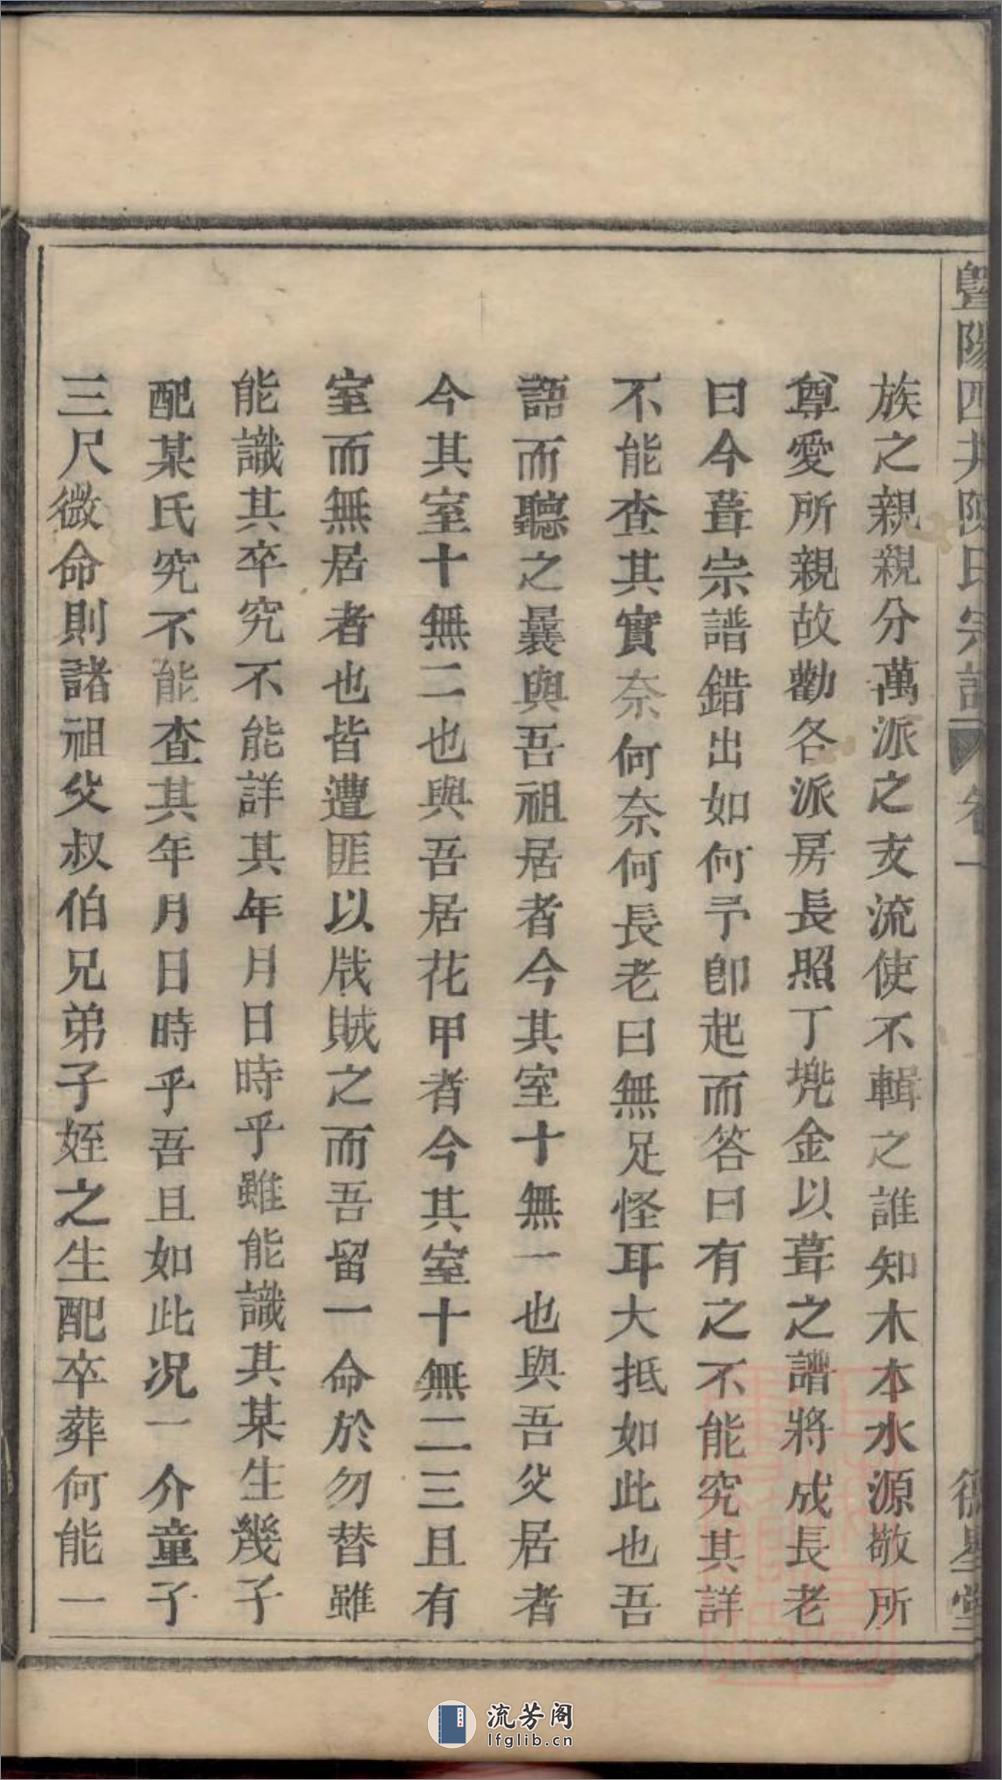 暨陽四井陳氏宗譜 卷一 德星堂
族之親親分萬派之支流使不輯之誰知木本水源敬所
尊愛所親故勸各派房長照丁兠金以葺之譜將成長老
曰今葺宗譜錯出如何予卽起而答曰有之不能究其詳
不能查其實奈何奈何長老曰無足怪耳大抵如此也吾
語而聽之曩與吾祖居者今其室十無一也與吾父居者
今其室十無二也與吾居花甲者今其室十無二三且有
室而無居者也皆遭匪以戕賊之而吾留一命於勿替雖
能識其卒究不能詳其年月日時乎雖能識其某生幾子
配某氏究不能查其年月日時乎吾且如此况一介童子
三尺微命則諸祖父叔伯兄弟子姪之生配卒葬何能一
流芳阁
lfglib.cn